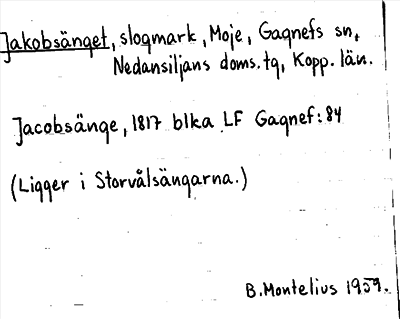 Jakobsänget, slogmark, Moje, Gagnefs sn,
Nedansiljans doms.tg, Kopp. län.
Jacobsänge, 1817 blka LF Gagnef:84
(Ligger i Storvålsängarna.)
B.Montelius 1959.